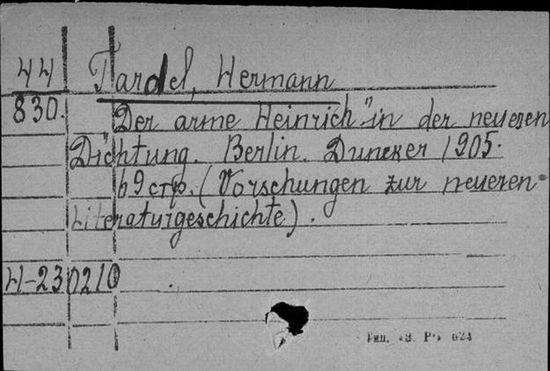 44 Tardel, Hermann
830. „Der arme Heinrich" in der neueren
Dichtung. Berlin. Duncker 1905.
69 стр. (Vorschungen zur neueren
Literaturgeschichte).
И-230210